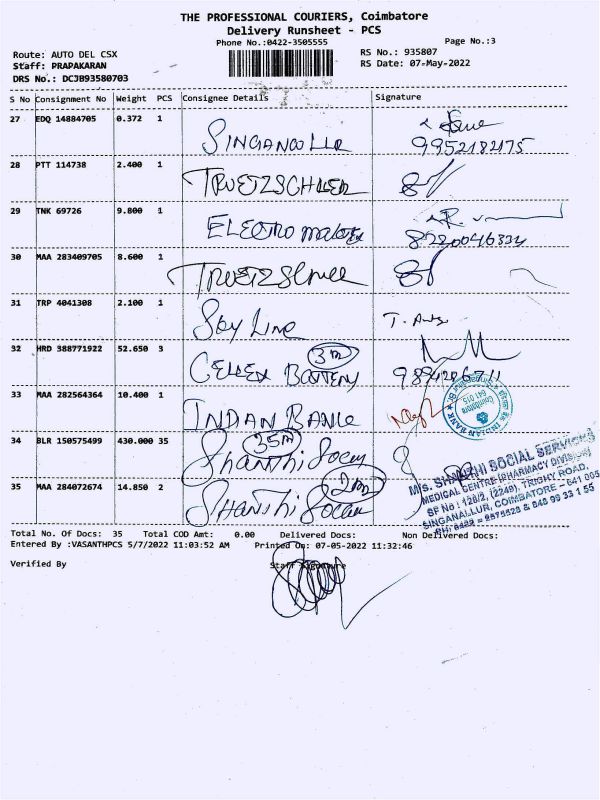 THE PROFESSIONAL COURIERS, Coimbatore
Delivery Runsheet - PCS
Phone No.:0422-3505555
Page No.:3
Route: AUTO DEL CSX
RS No.: 935807
Staff: PRAPAKARAN
RS Date: 07-May-2022
DRS No.: DCJB93580703
S No Consignment No Weight PCS Consignee Details Signature
27 EDQ 14884705 0.372 1
9952182175
28 PTT 114738 2.400 1
TRUETZSCHLER
29 TNK 69726 9.800 1
ELECTRO
8220046334
30 MAA 283409705 8.600 1
31 TRP 4041308 2.100 1
Sky Line
32 HRD 388771922 52.650 3
3
9894206711
33 MAA 282564364 10.400 1
INDIAN BANK
INDIAN BANK
Coimbatore
641 015
34 BLR 150575499 430.000 35
35
Shanthi Socem
35 MAA 284072674 14.850 2
2
SHANTHI Socem
M/s. SHANTHI SOCIAL SERVICES
MEDICAL CENTRE (PHARMACY DIVISION)
SF No : 128/2, (2249), TRICHY ROAD,
SINGANALLUR, COIMBATORE - 641 005
Total No. Of Docs: 35 Total COD Amt: 0.00 Delivered Docs: Non Delivered Docs:
Entered By :VASANTHPCS 5/7/2022 11:03:52 AM Printed On: 07-05-2022 11:32:46
Verified By Staff Signature